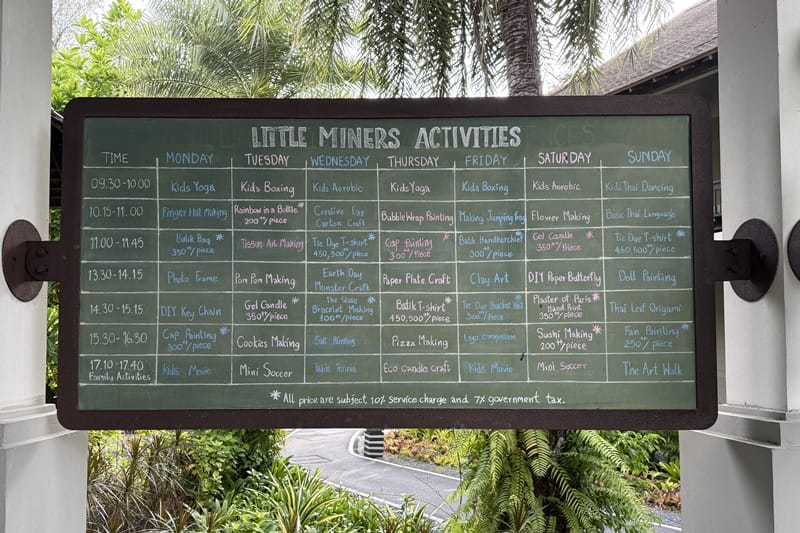 LITTLE MINERS ACTIVITIES
TIME MONDAY TUESDAY WEDNESDAY THURSDAY FRIDAY SATURDAY SUNDAY
09.30-10.00 Kids Yoga Kids Boxing Kids Aerobic Kids Yoga Kids Boxing Kids Aerobic Kids Thai Dancing
10.15-11.00 Finger Hill Making Rainbow in a Bottle* Creative Egg Bubble Wrap Painting Making Jumping Frog Flower Making Basic Thai Language
200++/piece Carton Craft
11.00-11.45 Batik Bag * Tissue Art Making Tie Dye T-shirt * Cap Painting * Batik Handkerchief * Gel Candle * Tie Dye T-shirt *
350++/piece 450,500++/piece 300++/piece 300++/piece 350++/piece 450,500++/piece
13.30-14.15 Photo Frame Pom Pom Making Earth Day Paper Plate Craft Clay Art DIY Paper Butterfly Doll Painting
Monster Craft
14.30-15.15 DIY Key Chain Gel Candle * The State Batik T-shirt * Tie Dye Bucket Hat Plaster of Paris * Thai Leaf Origami
350++/piece Bracelet Making * 450,500++/piece 300++/piece Hand Print
100++/piece 350++/piece
15.30-16.30 Cap Painting * Cookies Making Painting Pizza Making Lego competition Sushi Making * Fan Painting *
300++/piece 200++/piece 250++/piece
17.10-17.40 Kids Movie Mini Soccer Table Tennis Eco Candle Craft Kids Movie Mini Soccer The Art Walk
Family Activities
*All price are subject 10% service charge and 7% government tax.